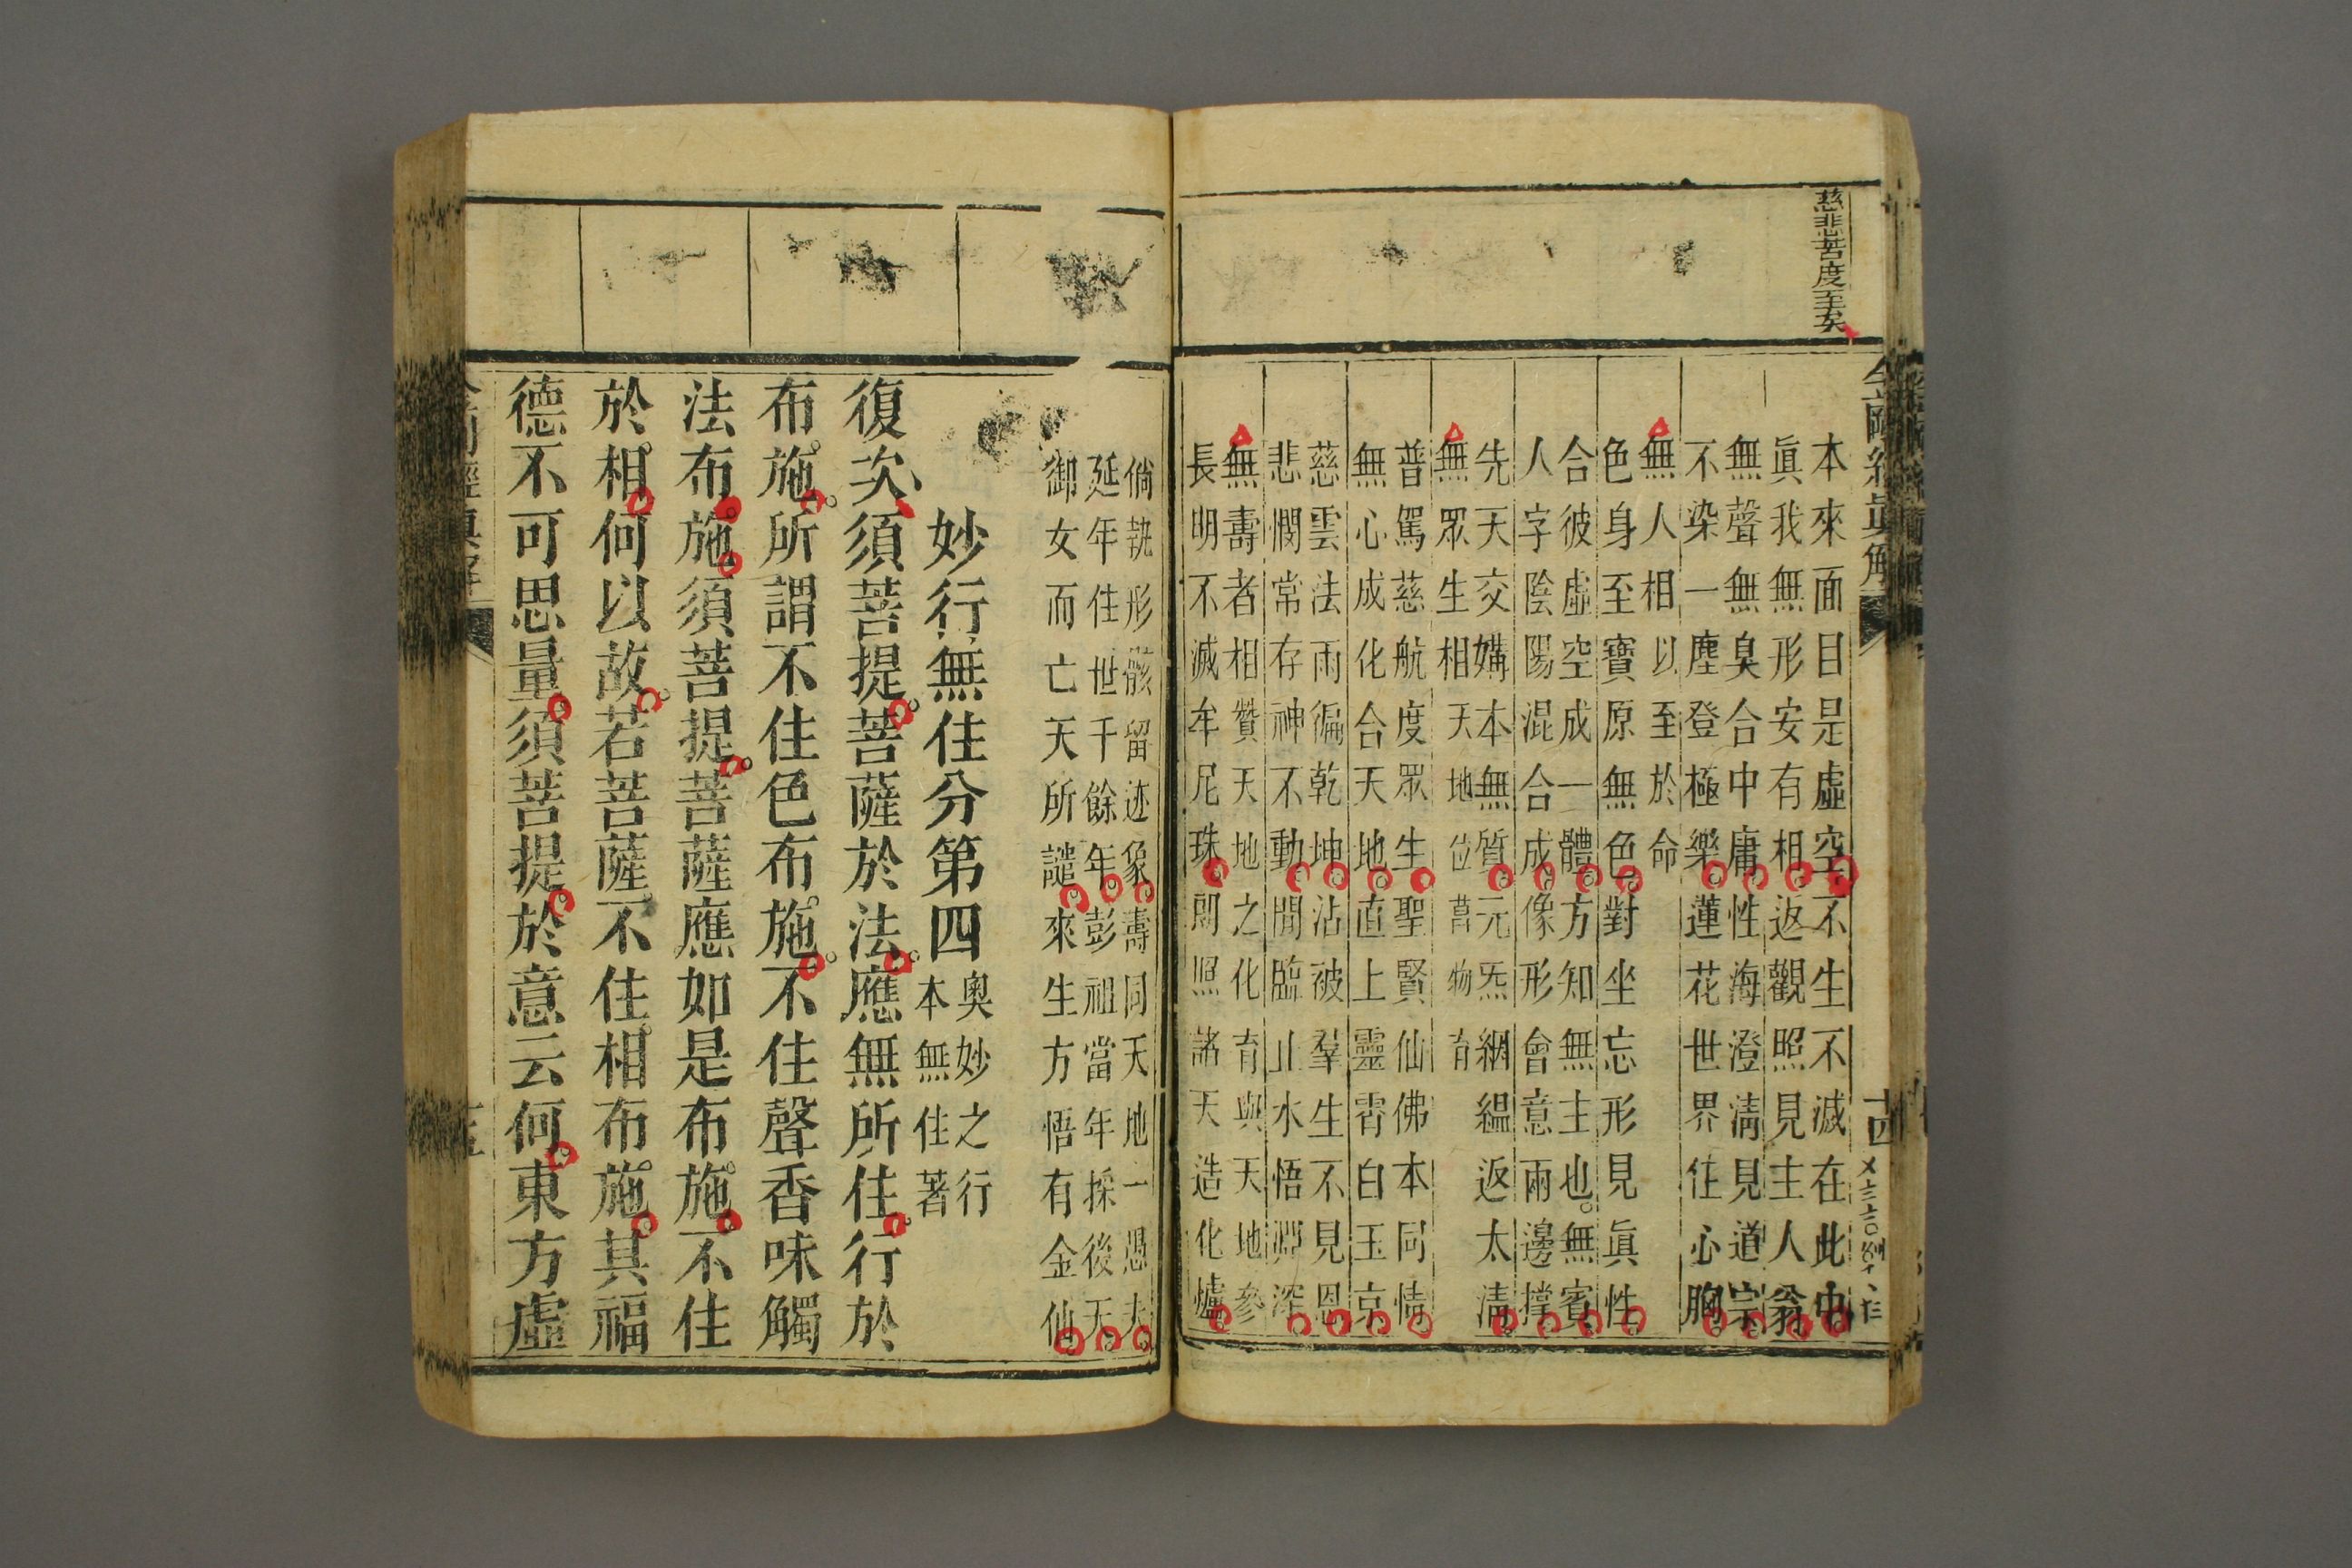 慈悲苦度至矣
本來面目是虛空不生不滅在此中
眞我無形安有相返觀照見主人翁
無聲無臭合中庸性海澄淸見道宗
不染一塵登極樂蓮花世界住心胸
無人相以至於命
色身至寶原無色對坐忘形見眞性
合彼虛空成一體方知無主也無賓
人字陰陽混合成像形會意兩邊撑
先天交媾本無質元炁絪縕返太淸
無眾生相天地位萬物育
普駕慈航度眾生聖賢仙佛本同情
無心成化合天地直上靈霄白玉京
慈雲法雨徧乾坤沾被羣生不見恩
悲憫常存神不動閒臨止水悟淵深
無壽者相贊天地之化育與天地參
長明不滅牟尼珠朗照諸天造化爐
金剛經眞解
十四
倘執形骸留迹象壽同天地一愚夫
延年住世千餘年彭祖當年採後天
御女而亡天所譴來生方悟有金仙
妙行無住分第四
奧妙之行
本無住著
復次須菩提菩薩於法應無所住行於
布施所謂不住色布施不住聲香味觸
法布施須菩提菩薩應如是布施不住
於相何以故若菩薩不住相布施其福
德不可思量須菩提於意云何東方虛